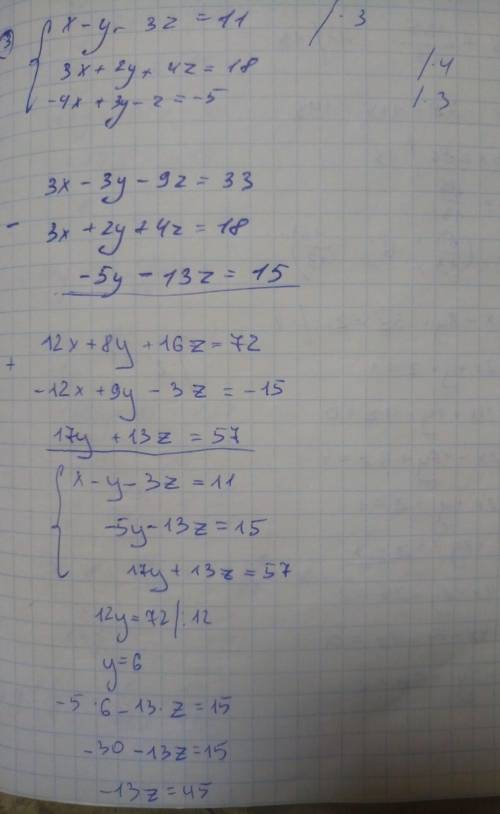 3) x - y - 3z = 11 /·3
3x + 2y + 4z = 18 /·4
-4x + 3y - z = -5 /·3
3x - 3y - 9z = 33
- 3x + 2y + 4z = 18
-5y - 13z = 15
12x + 8y + 16z = 72
+ -12x + 9y - 3z = -15
17y + 13z = 57
x - y - 3z = 11
-5y - 13z = 15
17y + 13z = 57
12y = 72 /:12
y = 6
-5·6 - 13·z = 15
-30 - 13z = 15
-13z = 45